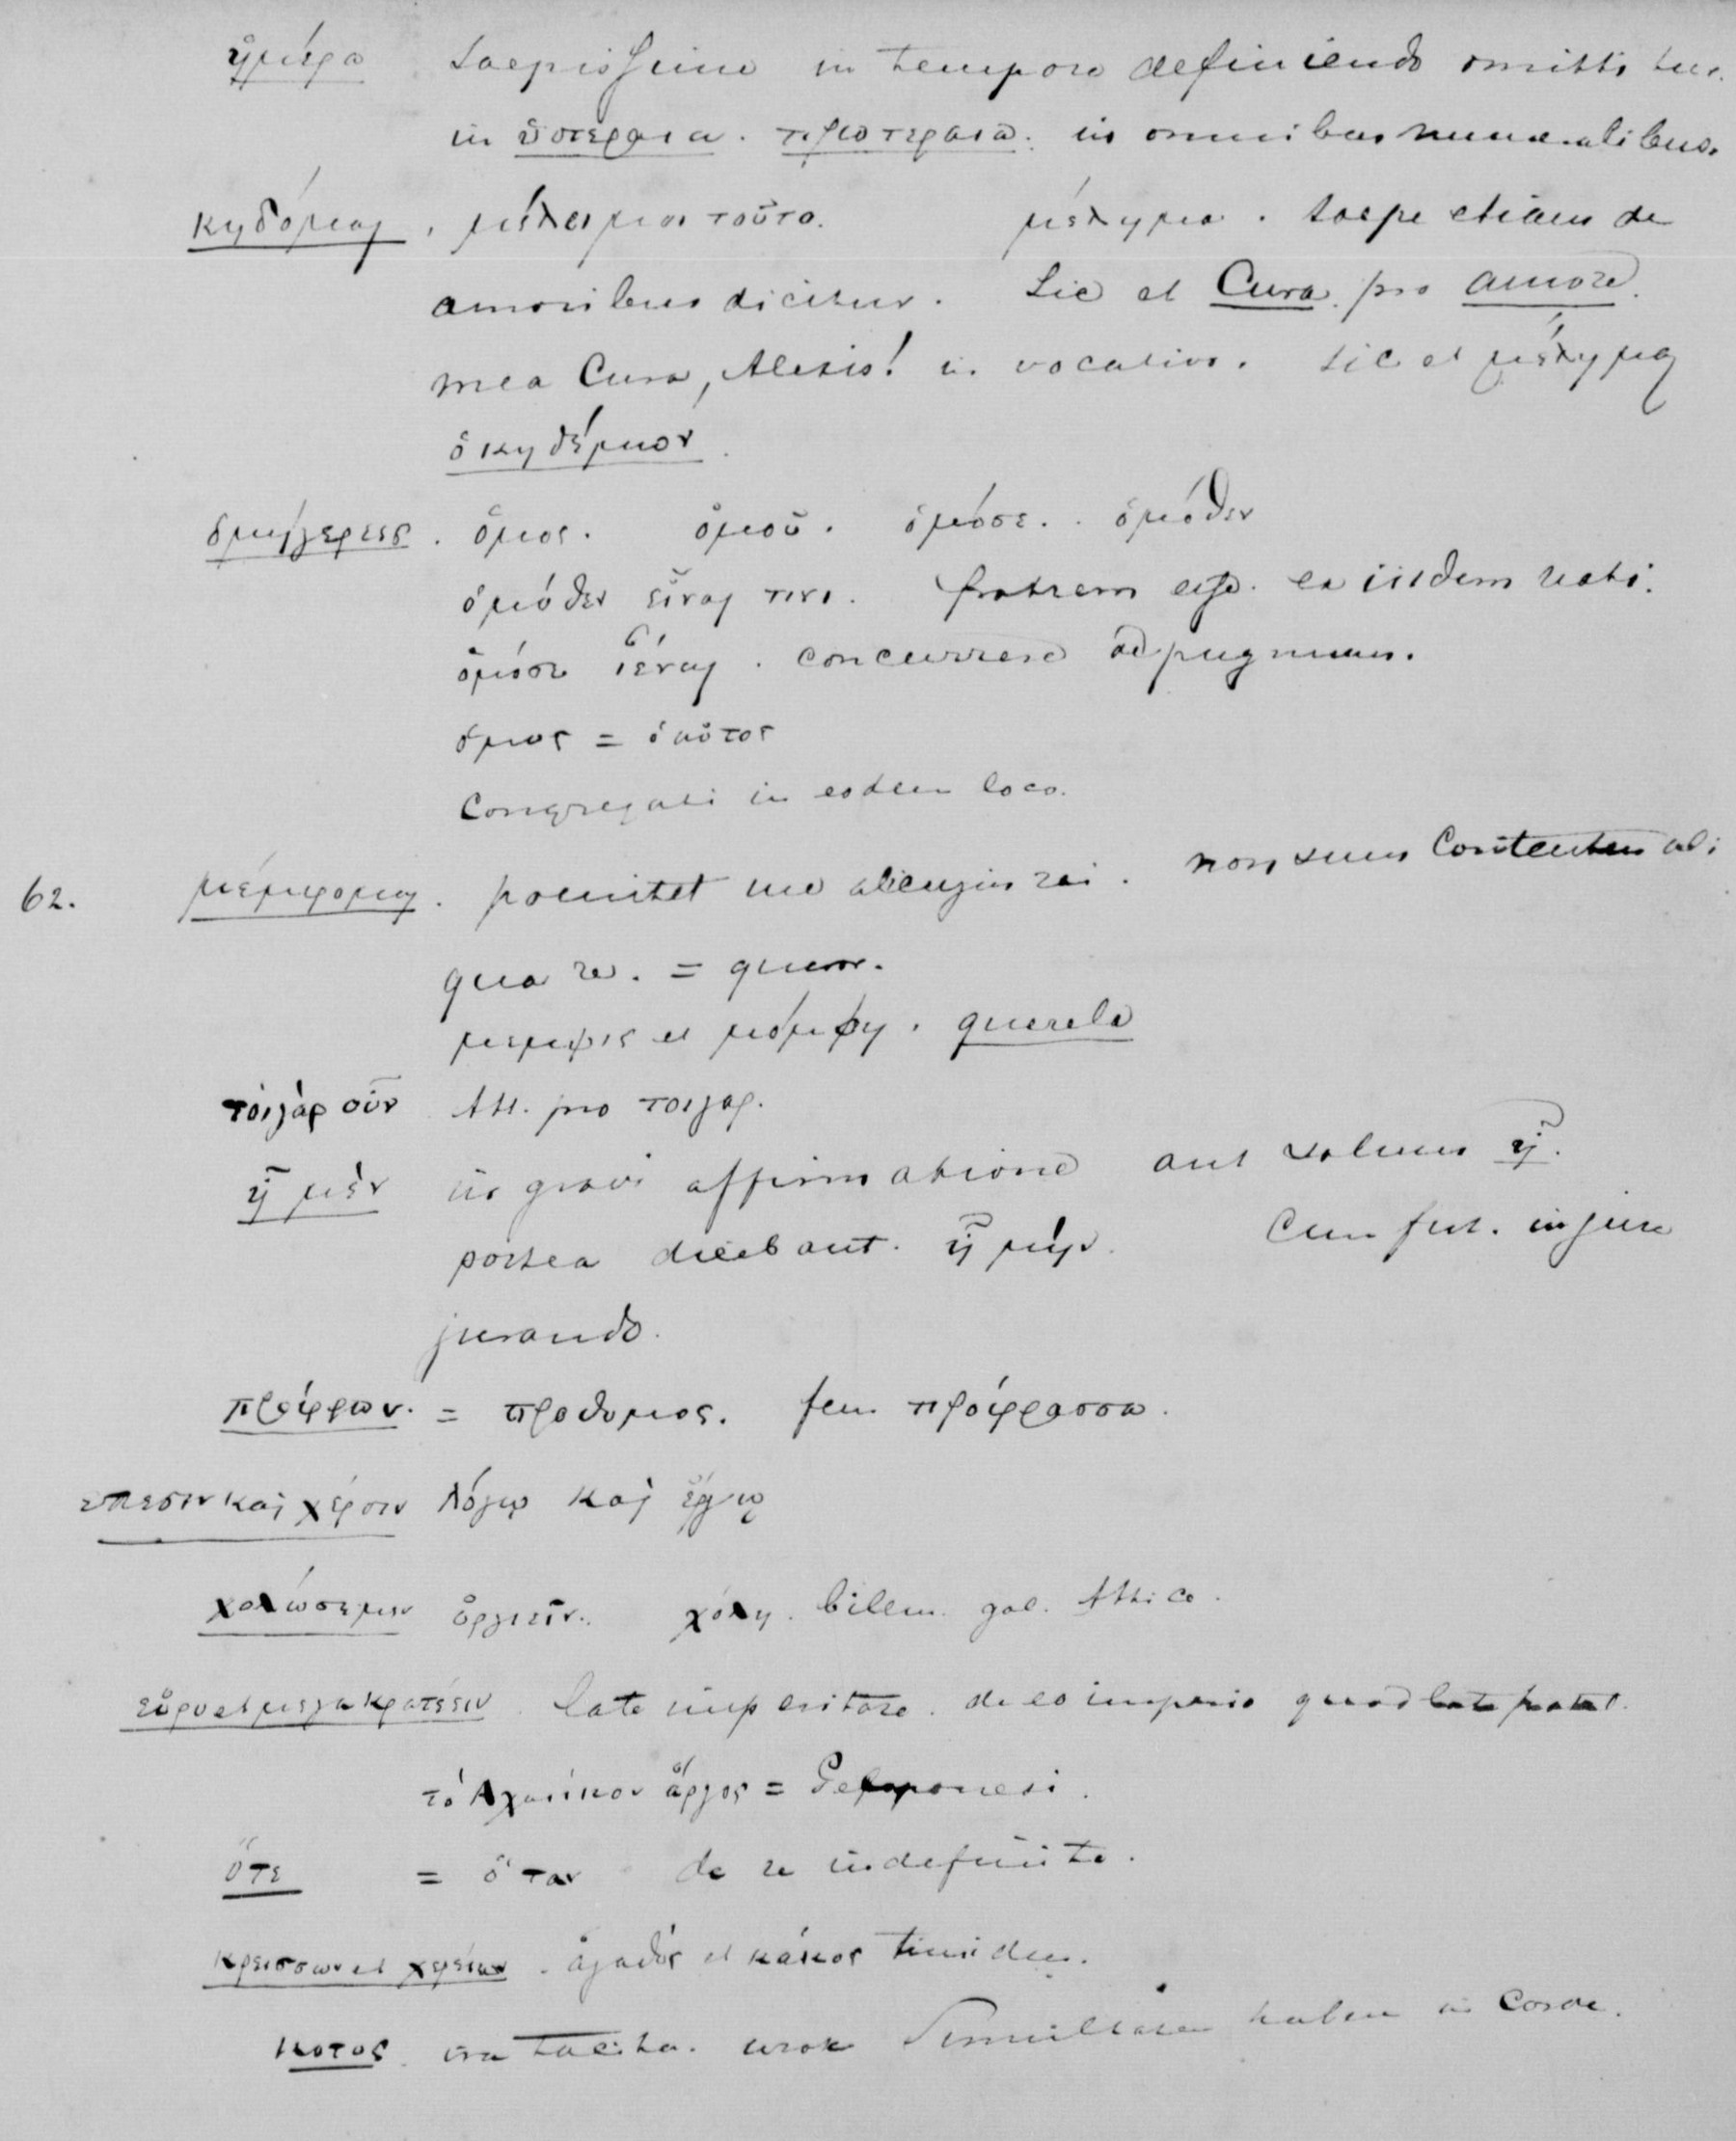 ἡμέρα saepissime in tempore definiendo omittitur.
in ὑστεραια. προτεραια. in omnibus numeralibus.
κηδόμαι, μέλει μοι τοῦτο. μέλημα. saepe etiam de
amoribus dicitur. Sic et Cura pro amore.
mea Cura, Alexis! in vocativo. sic et μέλημα
ὁμηγερεες. ὅμος. ὁμοῦ. ὁμόσε. ὁμόθεν
ὁμόθεν εἶναι τινι. fratrem esse. ex iisdem nati.
ὁμόσε ἰέναι. concurrere ad pugnam.
ὁμος = ὁ αὐτος
Congregati in eodem loco.
62. μέμφομαι. poenitet me alicujus rei. non sum Contentus ali
qua re. = queror.
μεμψις et μόμφη. querela
τοιγὰρ οὖν Att. pro τοιγαρ.
ἦ μὲν in gravi affirmatione aut solum ἦ.
postea dicebant. ἦ μήν. Cum fut. in jure
jurando.
πρόφρων. = προθυμος. fem πρόφρασσα.
επεσιν και χέρσιν λόγῳ και ἔργῳ
χολώσεμεν ὀργιεῖν. χόλη. bilem. gal. Attice.
εὐρυ et μεγα κρατέειν. late imperitare. de eo imperio quod late patet.
τό Αχαιίκον ἄργος = Peloponesi.
ὅτε = ὅταν de re indefinita.
κρεισσων et χερείων. ἀγαθός et κάκος timidus.
κοτος. ira tacita. wrok Simultatem habere in Corde.